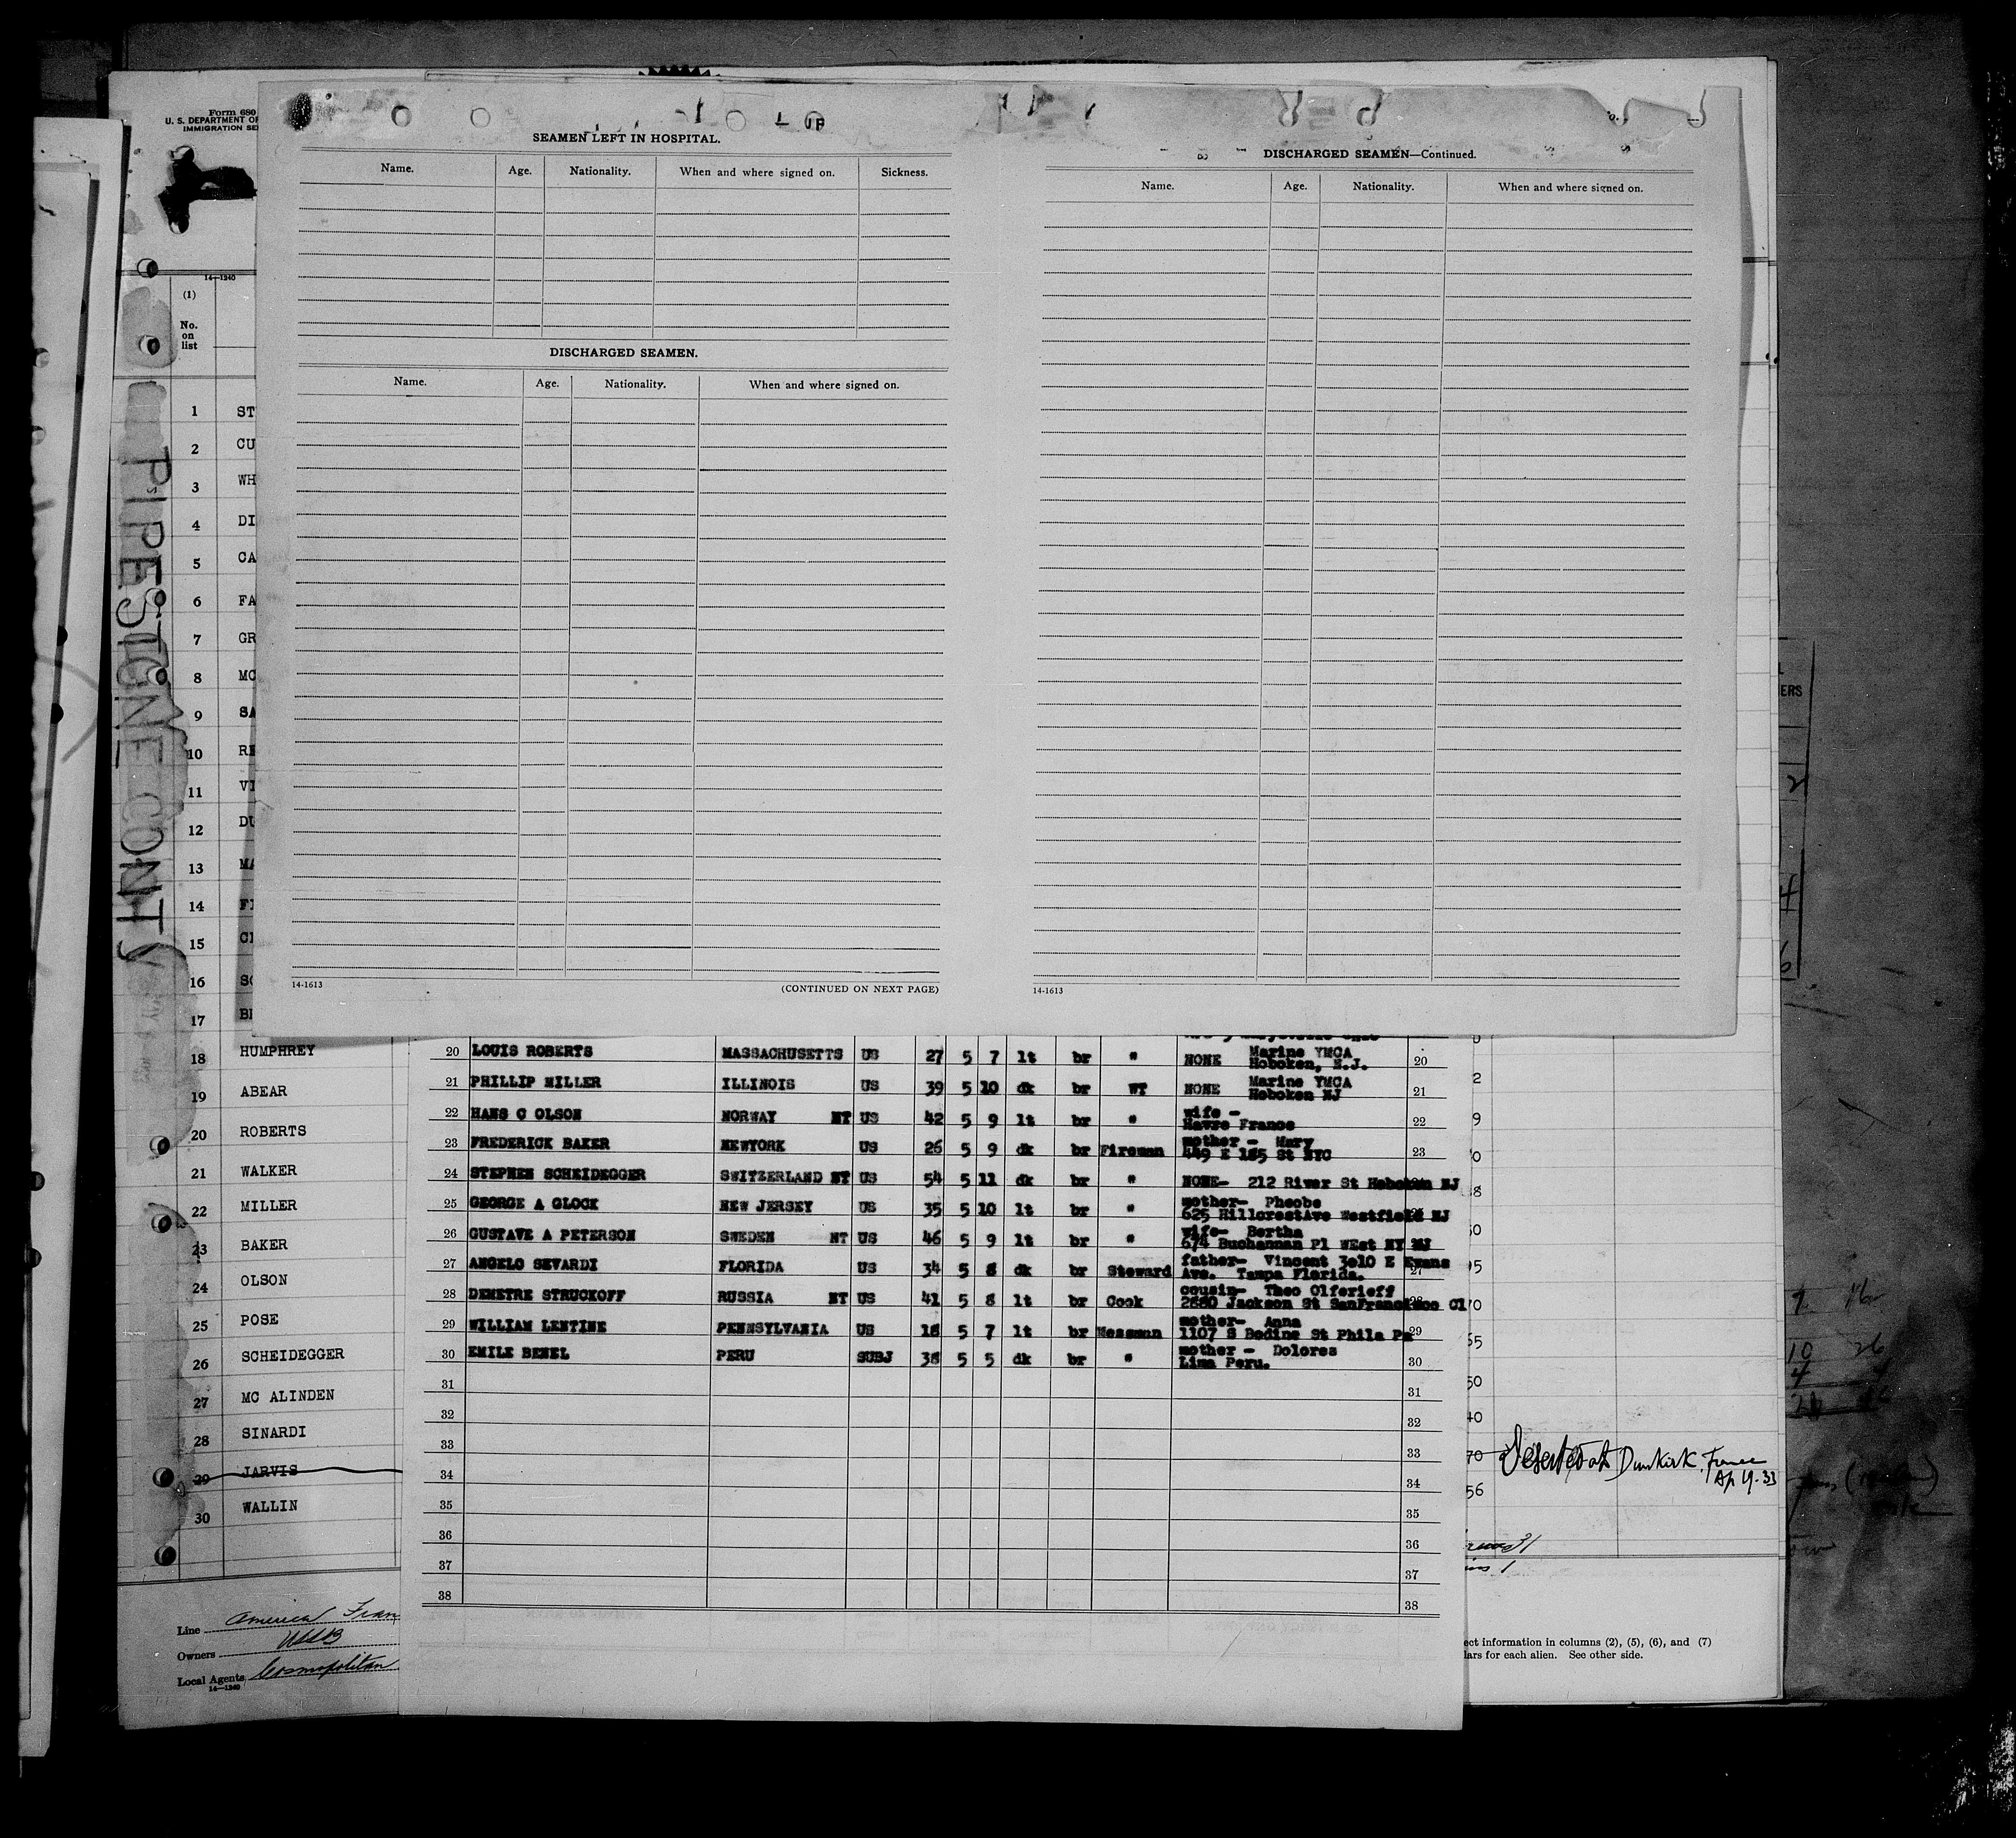 Form 680
U. S. DEPARTMENT OF
IMMIGRATION SE
14—1240
(1)
No.
on
list
SEAMEN LEFT IN HOSPITAL.
Name. Age. Nationality. When and where signed on. Sickness.
DISCHARGED SEAMEN.
Name. Age. Nationality. When and where signed on.
14-1613
(CONTINUED ON NEXT PAGE)
DISCHARGED SEAMEN—Continued.
Name. Age. Nationality. When and where signed on.
14-1613
PIPESTONE CONTY
1 ST
2 CU
3 WH
4 DI
5 CA
6 FA
7 GR
8 MC
9 SA
10 RE
11 VI
12 DU
13 MA
14 FI
15 CI
16 SC
17
18 HUMPHREY
19 ABEAR
20 ROBERTS
21 WALKER
22 MILLER
23 BAKER
24 OLSON
25 POSE
26 SCHEIDEGGER
27 MC ALINDEN
28 SINARDI
29 JARVIS
30 WALLIN
20 LOUIS ROBERTS MASSACHUSETTS US 27 5 7 lt br " NONE Marine YMCA 20
Hoboken, N.J.
21 PHILLIP MILLER ILLINOIS US 39 5 10 dk br WT NONE Marine YMCA 21
Hoboken NJ
22 HANS C OLSON NORWAY NT US 42 5 9 lt br " wife - 22
Havre France
23 FREDERICK BAKER NEWYORK US 26 5 9 dk br Fireman mother - Mary 23
449 E 185 St NYC
24 STEPHEN SCHEIDEGGER SWITZERLAND NT US 54 5 11 dk br " NONE- 212 River St Hoboken NJ
25 GEORGE A GLOCK NEW JERSEY US 35 5 10 lt br " mother- Phoebe
625 HillcrestAve Westfield NJ
26 GUSTAVE A PETERSON SWEDEN NT US 46 5 9 lt br " wife- Bertha
674 Buchannan Pl WEst NY NJ
27 ANGELO SEVARDI FLORIDA US 34 5 8 dk br Steward father- Vincent 3010 E Evans 27
Ave. Tampa Florida.
28 DEMETRE STRUCKOFF RUSSIA NT US 41 5 8 lt br Cook cousin- Theo Olferieff 28
2880 Jackson St SanFrancisco Cl
29 WILLIAM LENTINE PENNSYLVANIA US 18 5 7 lt br Messman mother- Anna 29
1107 S Bodine St Phila Pa
30 EMILE BENEL PERU SUBJ 38 5 5 dk br " mother - Dolores 30
Lima Peru.
31 31
32 32
33 33
34 34
35 35
36 36
37 37
38 38
Deserted at Dunkirk, France
Ap 19-33
Line America Fran
Owners USSB
Local Agents Cosmopolitan
14—1240
ect information in columns (2), (5), (6), and (7)
lars for each alien. See other side.
ERS